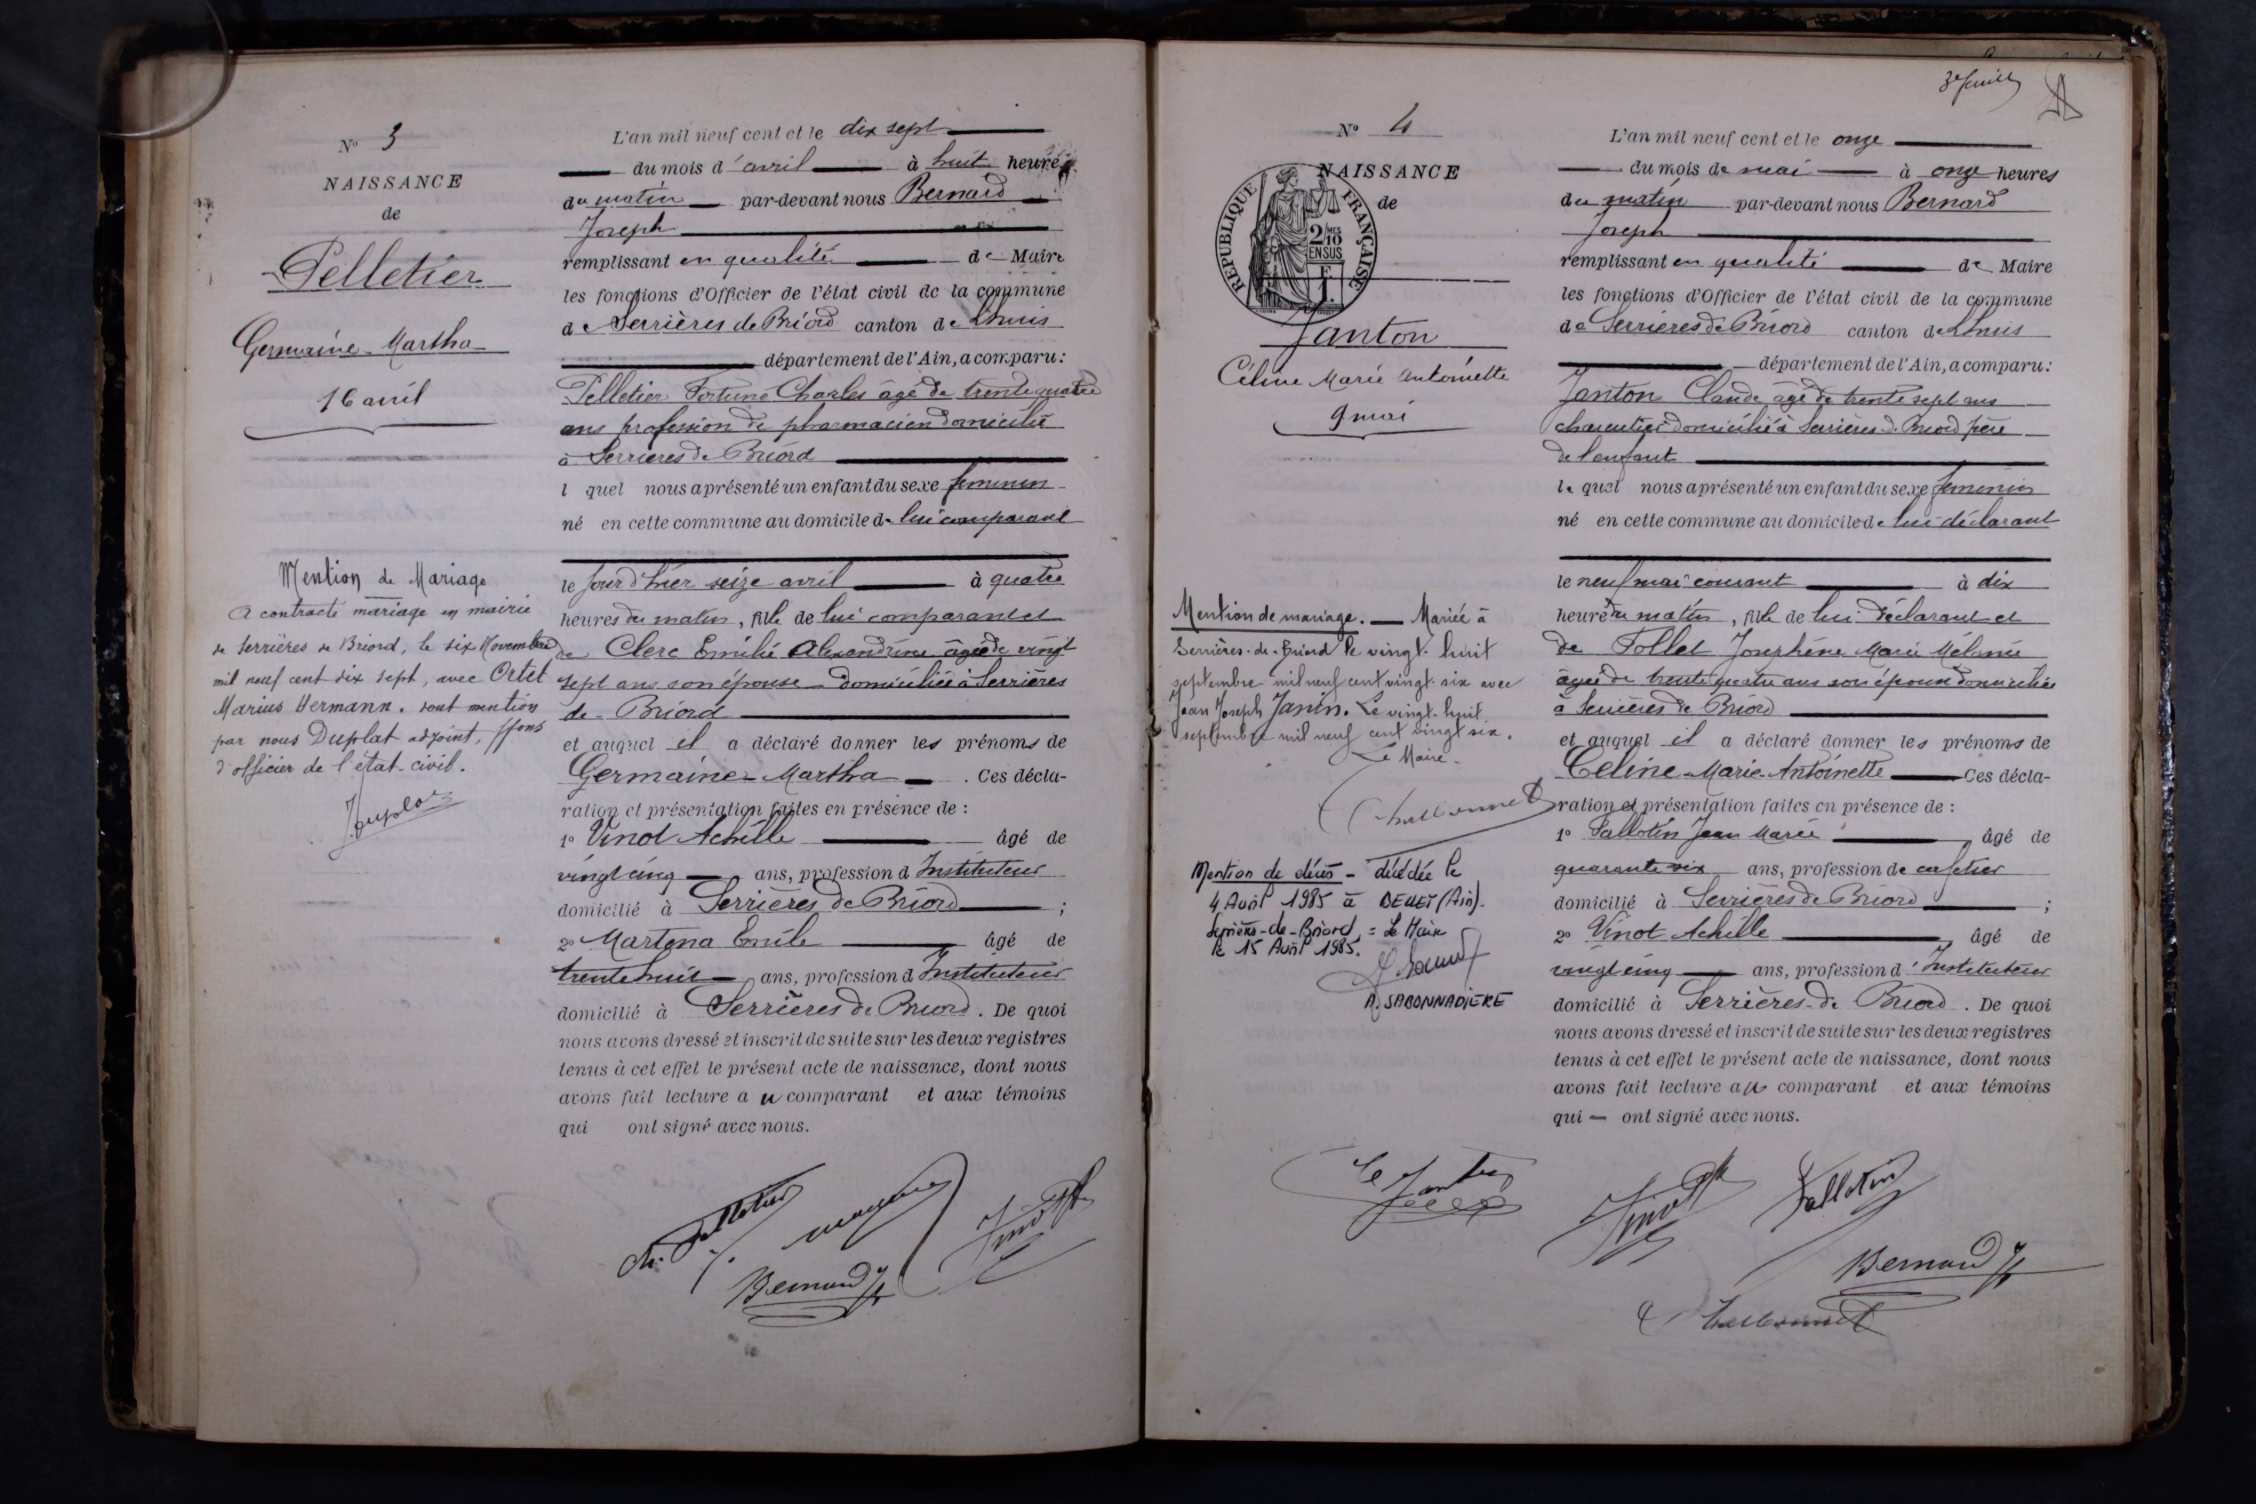 N° 3
NAISSANCE
de
Pelletier
Germaine-Martha
16 avril
Mention de Mariage
A contracté mariage en mairie
de Serrières de Briord, le six Novembre
mil neuf cent dix sept, avec Ortet
Marius Hermann. dont mention
par nous Duplat adjoint, ffons
d'officier de l'état-civil.
Duplat
L'an mil neuf cent et le dix sept
du mois d'avril à huit heures
du matin par-devant nous Bernard
Joseph
remplissant en qualité de Maire
les fonctions d'Officier de l'état civil de la commune
de Serrières de Briord canton de Lhuis
département de l'Ain, a comparu:
Pelletier Fortuné Charles âgé de trente quatre
ans profession de pharmacien domicilié
à Serrieres de Briord
l quel nous a présenté un enfant du sexe feminin
né en cette commune au domicile de lui comparant
le jour d'hier seize avril à quatre
heures du matin, fille de lui comparant et
de Clerc Emilie Alexandrine âgée de vingt
sept ans son épouse domiciliée à Serrières
de Briord
et auquel il a déclaré donner les prénoms de
Germaine-Martha. Ces décla-
ration et présentation faites en présence de:
1° Vinot Achille âgé de
vingt cinq ans, profession d Instituteur
domicilié à Serrières de Briord;
2° Martena Emile âgé de
trente huit ans, profession d Instituteur
domicilié à Serrières de Briord. De quoi
nous avons dressé et inscrit de suite sur les deux registres
tenus à cet effet le présent acte de naissance, dont nous
avons fait lecture au comparant et aux témoins
qui ont signé avec nous.
Ch. Pelletier
Bernard J
Vinot
3e feuillet
N° 4
NAISSANCE
de
REPUBLIQUE FRANÇAISE
2/10 MES
EN SUS
Janton
Céline Marie Antoinette
9 mai
Mention de mariage. Mariée à
Serrières-de-Briord le vingt-huit
septembre mil neuf cent vingt-six avec
Jean Joseph Janin. Le vingt-huit
septembre mil neuf cent vingt six.
Le Maire.
Mention de décès - décédée le
4 Août 1985 à BELLEY (Ain).
Serrières-de-Briord = Le Maire
le 15 Août 1985.
A. SABONNADIERE
L'an mil neuf cent et le onze
du mois de mai à onze heures
du matin par-devant nous Bernard
Joseph
remplissant en qualité de Maire
les fonctions d'Officier de l'état civil de la commune
de Serrieres de Briord canton de Lhuis
département de l'Ain, a comparu:
Janton Claude, âgé de trente sept ans
charcutier domicilié à Serrières de Briord père
de l'enfant
le quel nous a présenté un enfant du sexe feminin
né en cette commune au domicile de lui déclarant
le neuf mai courant à dix
heures du matin, fille de lui déclarant et
de Follet Josephine Marie Mélanie
âgée de trente quatre ans son épouse domiciliée
à Serrières de Briord
et auquel il a déclaré donner les prénoms de
Celine-Marie-Antoinette Ces décla-
ration et présentation faites en présence de:
1° Sallotin Jean Marie âgé de
quarante six ans, profession de cafetier
domicilié à Serrières de Briord;
2° Vinot Achille âgé de
vingt cinq ans, profession d'Instituteur
domicilié à Serrières-de Briord. De quoi
nous avons dressé et inscrit de suite sur les deux registres
tenus à cet effet le présent acte de naissance, dont nous
avons fait lecture au comparant et aux témoins
qui ont signé avec nous.
Janton
Vinot
Sallotin
Bernard J